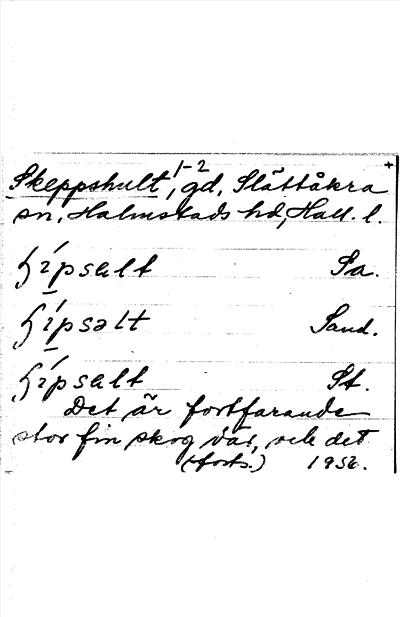 Skeppshult, 1-2 gd, Slättåkra +
sn, Halmstads hd, Hall. l.
ɧípsalt Sa.
ɧípsalt Sand.
ɧípsalt St.
Det är fortfarande
stor fin skog där, och det
(forts.) 1956.